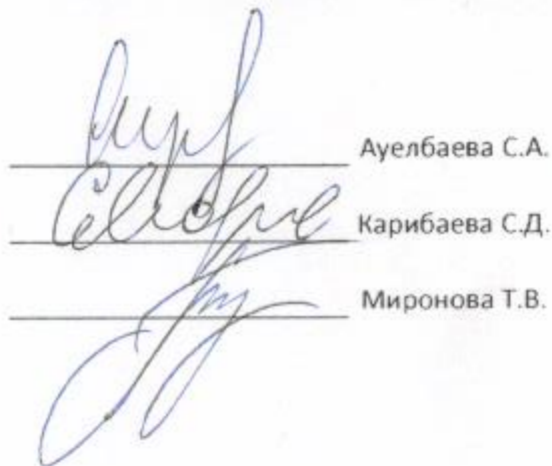 Ауелбаева С.А.
Карибаева С.Д.
Миронова Т.В.